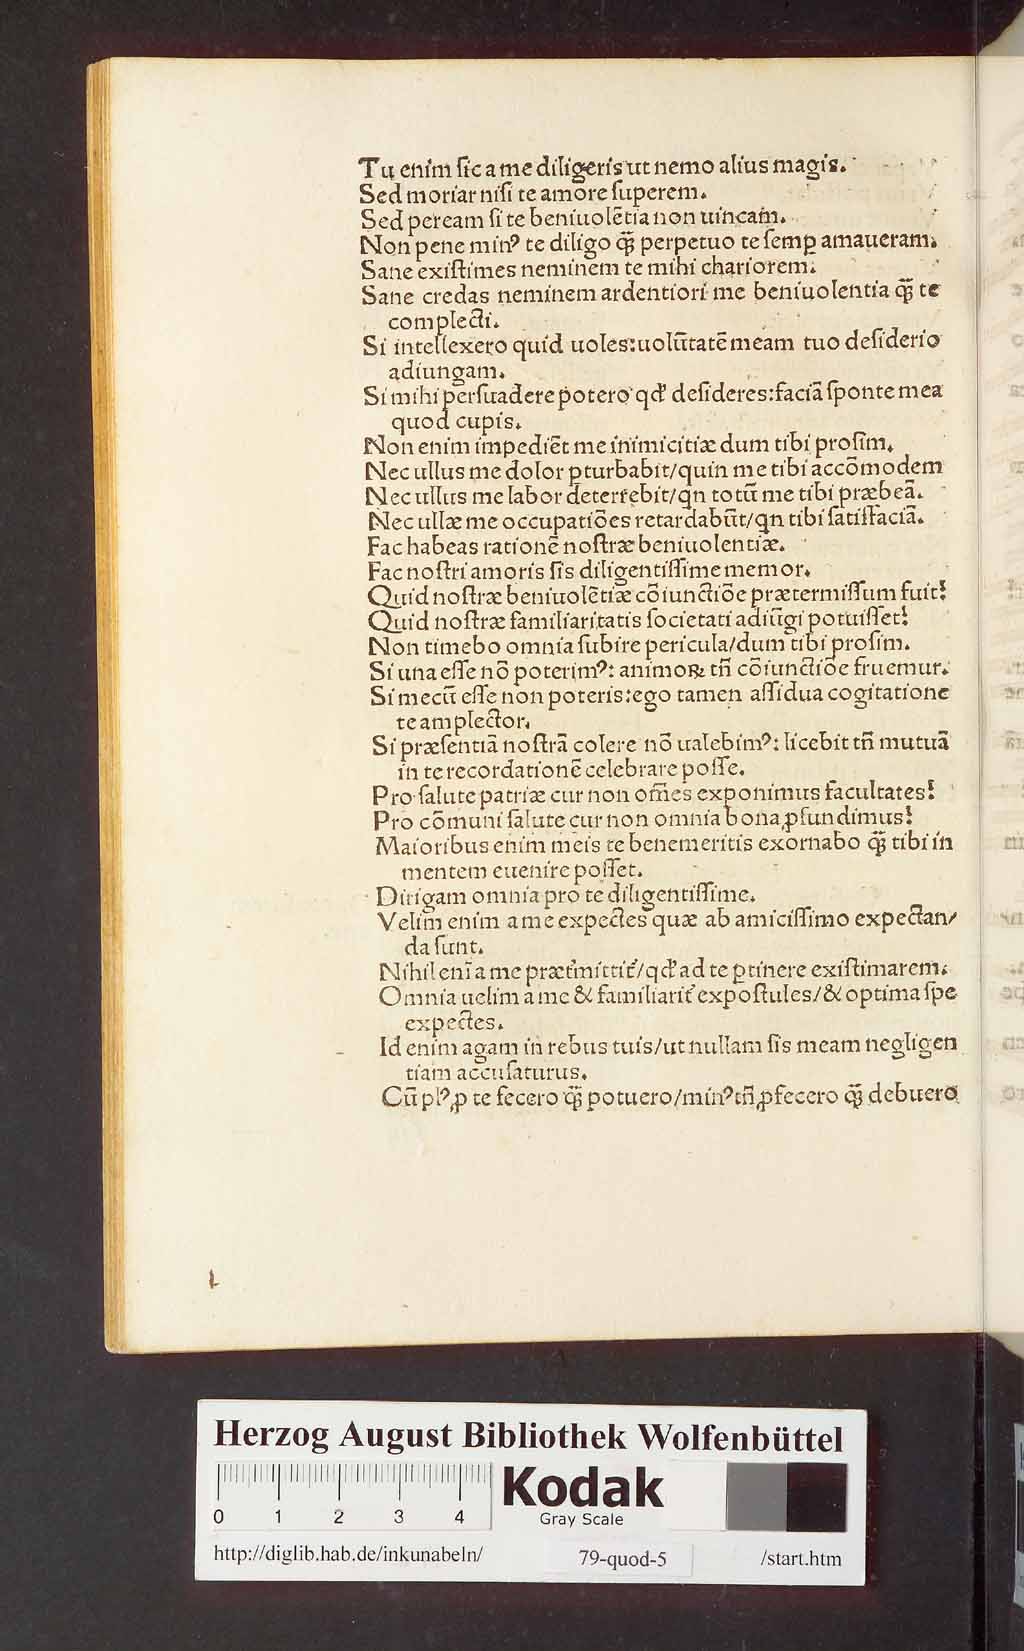 Tu enim ſic a me diligeris ut nemo alius magis.
Sed moriar niſi te amore ſuperem.
Sed peream ſi te beniuolẽtia non uincam.
Non pene minꝰ te diligo q̃ꝫ perpetuo te ſemꝑ amaueram.
Sane exiſtimes neminem te mihi chariorem.
Sane credas neminem ardentiori me beniuolentia q̃ꝫ te
complecti.
Si intellexero quid uoles: uolũtatẽ meam tuo deſiderio
adiungam.
Si mihi perſuadere potero qđ deſideres: faciã ſponte mea
quod cupis.
Non enim impediẽt me inimicitiæ dum tibi proſim.
Nec ullus me dolor ꝑturbabit/quin me tibi accõmodem
Nec ullus me labor deterrebit/qn totũ me tibi præbeã.
Nec ullæ me occupatiões retardabũt/qn tibi ſatiſfaciã.
Fac habeas rationẽ noſtræ beniuolentiæ.
Fac noſtri amoris ſis diligentiſſime memor.
Quid noſtræ beniuolẽtiæ cõiunctiõe prætermiſſum fuit?
Quid noſtræ familiaritatis ſocietati adiũgi potuiſſet?
Non timebo omnia ſubire pericula/dum tibi proſim.
Si una eſſe nõ poterimꝰ: animoꝝ tñ cõiunctiõe fruemur.
Si mecũ eſſe non poteris: ego tamen aſſidua cogitatione
te amplector.
Si præſentiã noſtrã colere nõ ualebimꝰ: licebit tñ mutuã
in te recordationẽ celebrare poſſe.
Pro ſalute patriæ cur non om̃es exponimus facultates?
Pro cõmuni ſalute cur non omnia bona ꝓfundimus?
Maioribus enim meis te benemeritis exornabo q̃ꝫ tibi in
mentem euenire poſſet.
Dirigam omnia pro te diligentiſſime.
Velim enim a me expectes quæ ab amiciſſimo expectan/
da ſunt.
Nihil enĩ a me prætmittit̃/qđ ad te ꝑtinere exiſtimarem.
Omnia uelim a me & familiarit̃ expoſtules/& optima ſpe
expectes.
Id enim agam in rebus tuis/ut nullam ſis meam negligen
tiam accuſaturus.
Cũ plꝰ ꝓ te fecero q̃ꝫ potuero/minꝰ tñ ꝓfecero q̃ꝫ debuero
Herzog August Bibliothek Wolfenbüttel
0 1 2 3 4
Kodak
Gray Scale
http://diglib.hab.de/inkunabeln/ 79-quod-5 /start.htm